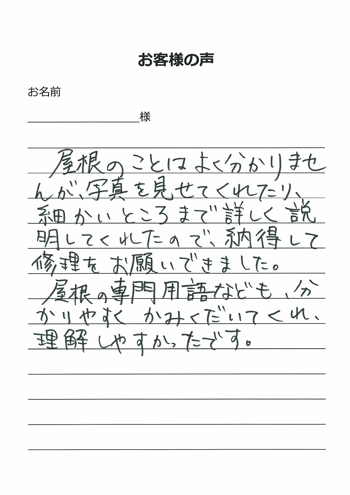 お客様の声
お名前
様
屋根のことはよく分かりませ
んが、写真を見せてくれたり、
細かいところまで詳しく説
明してくれたので、納得して
修理をお願いできました。
屋根の専門用語なども、分
かりやすくかみくだいてくれ、
理解しやすかったです。